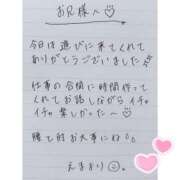 お兄様へ♡
今日は遊びに来てくれて
ありがとうございました
仕事の合間に時間作って
くれてお話しながらイチャ
イチャ楽しかった〜♡
腰お大事にね
えま